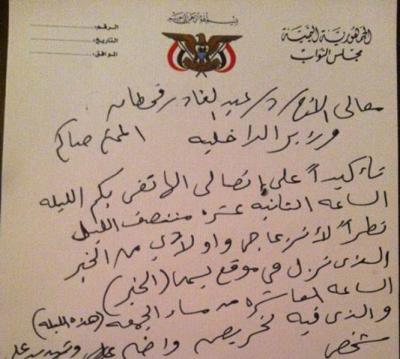 بسم الله الرحمن الرحيم
الجمهورية اليمنية
مجلس النواب
الرقم:
التاريخ:
الموافق:
معالي الأخ / د / عبد القادر قحطان
وزير الداخلية المحترم
تأكيداً على إتصالي الهاتفي بكم الليلة
الساعة الثانية عشرة منتصف الليل
نظراً لانزعاجي وأولادي من الخبر
الذي نزل في موقع يسما (الخبر)
الساعة العاشرة من مساء الجمعة (هذه الليلة)
والذي فيه تحريض واضح على
شخصي